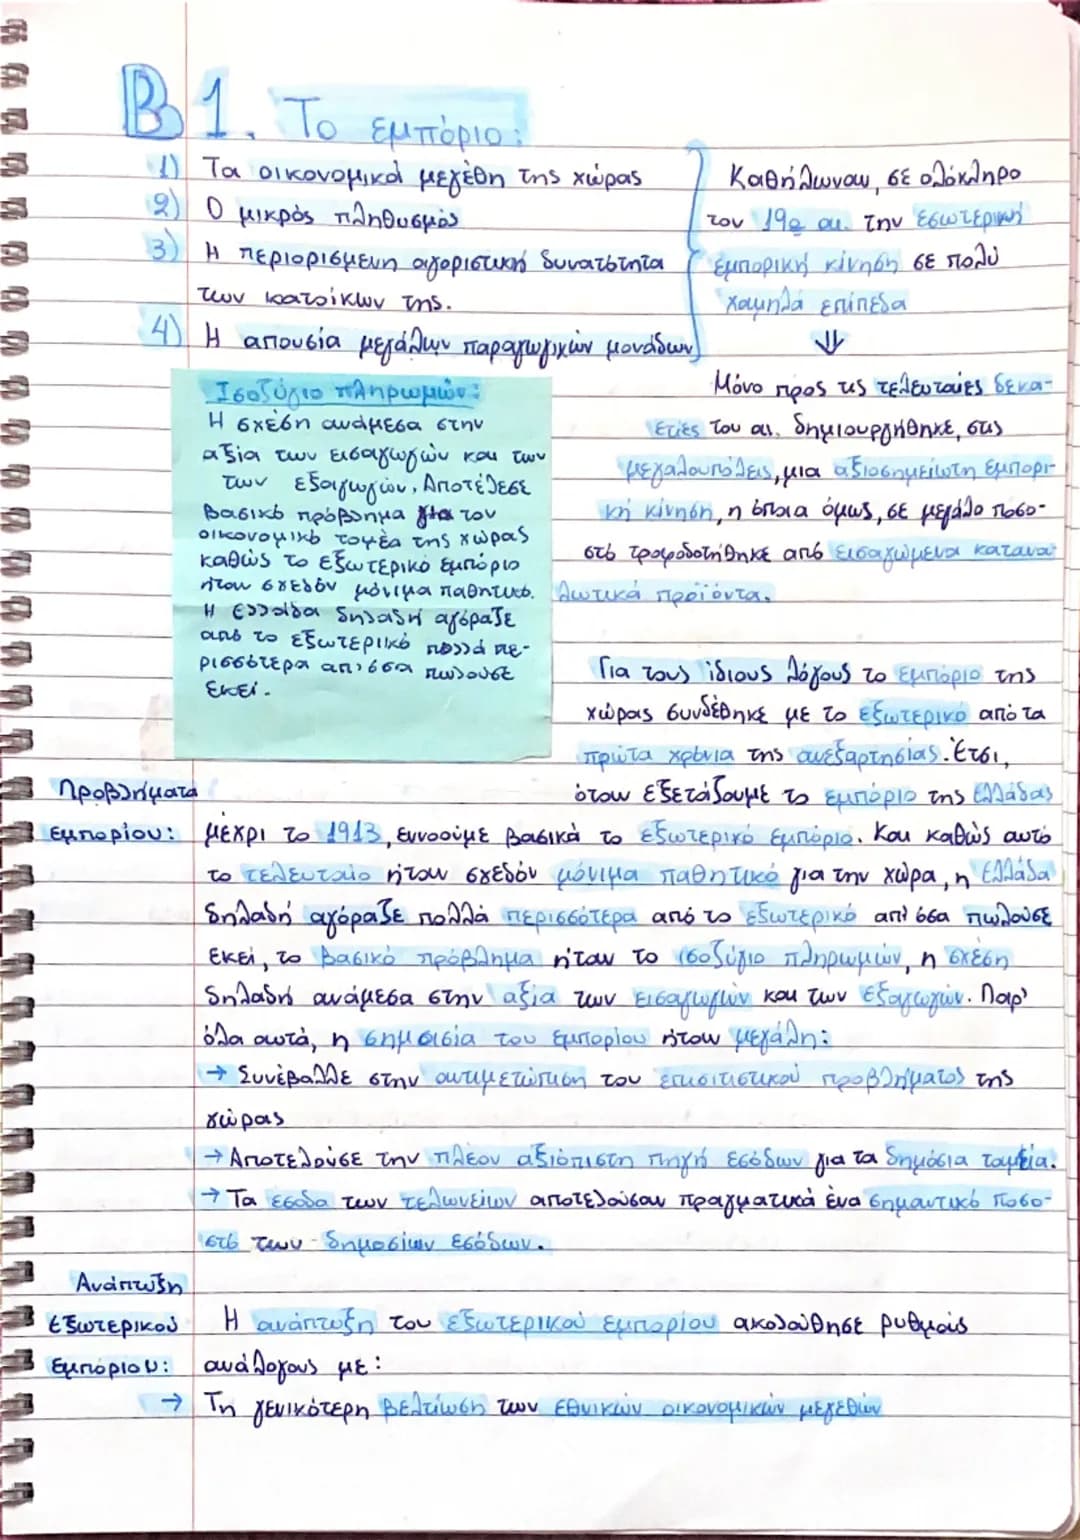 Β 1. Το εμπόριο:
1) Τα οικονομικά μεγέθη της χώρας
2) Ο μικρός πληθυσμός
3) Η περιορισμένη αγοριστική δυνατότητα
των κατοίκων της.
4) Η απουσία μεγάλων παραγωγικών μονάδων
Καθήλωναν, σε ολόκληρο
τον 19ο αι. την εσωτερική
εμπορική κίνηση σε πολύ
χαμηλά επίπεδα
⇓
Μόνο προς τις τελευταίες δεκα-
ετίες του αι. δημιουργήθηκε, στις
μεγαλουπόλεις, μια αξιοσημείωτη εμπορι-
κή κίνηση, η όποια όμως, σε μεγάλο ποσο-
στό τροφοδοτήθηκε από εισαγώμενα κατανα
λωτικά προϊόντα.
Ισοζύγιο πληρωμών:
Η σχέση ανάμεσα στην
αξία των εισαγωγών και των
των εξαγωγών. Αποτέλεσε
βασικό πρόβλημα για τον
οικονομικό τομέα της χώρας
καθώς το εξωτερικό εμπόριο
ήταν σχεδόν μόνιμα παθητικό.
Η Ελλάδα δηλαδή αγόραζε
από το εξωτερικό πολλά πε-
ρισσότερα απ' όσα πωλούσε
εκεί.
Για τους ίδιους λόγους το εμπόριο της
χώρας συνδέθηκε με το εξωτερικό από τα
πρώτα χρόνια της ανεξαρτησίας. Έτσι,
όταν εξετάζουμε το εμπόριο της Ελλάδας
Προβλήματα
εμπορίου:
μέχρι το 1913, εννοούμε βασικά το εξωτερικό εμπόριο. Και καθώς αυτό
το τελευταίο ήταν σχεδόν μόνιμα παθητικό για την χώρα, η Ελλάδα
δηλαδή αγόραζε πολλά περισσότερα από το εξωτερικό απ' όσα πωλούσε
εκεί, το βασικό πρόβλημα ήταν το ισοζύγιο πληρωμών, η σχέση
δηλαδή ανάμεσα στην αξία των εισαγωγών και των εξαγωγών. Παρ'
όλα αυτά, η σημασία του εμπορίου ήταν μεγάλη:
→ Συνέβαλλε στην αντιμετώπιση του επισιτιστικού προβλήματος της
χώρας
→ Αποτελούσε την πλέον αξιόπιστη πηγή εσόδων για τα δημόσια ταμεία.
→ Τα έσοδα των τελωνείων αποτελούσαν πραγματικά ένα σημαντικό ποσο-
στό των δημοσίων εσόδων.
Ανάπτυξη
εξωτερικού
εμπορίου:
Η ανάπτυξη του εξωτερικού εμπορίου ακολούθησε ρυθμούς
ανάλογους με:
→ Τη γενικότερη βελτίωση των εθνικών οικονομικών μεγεθών